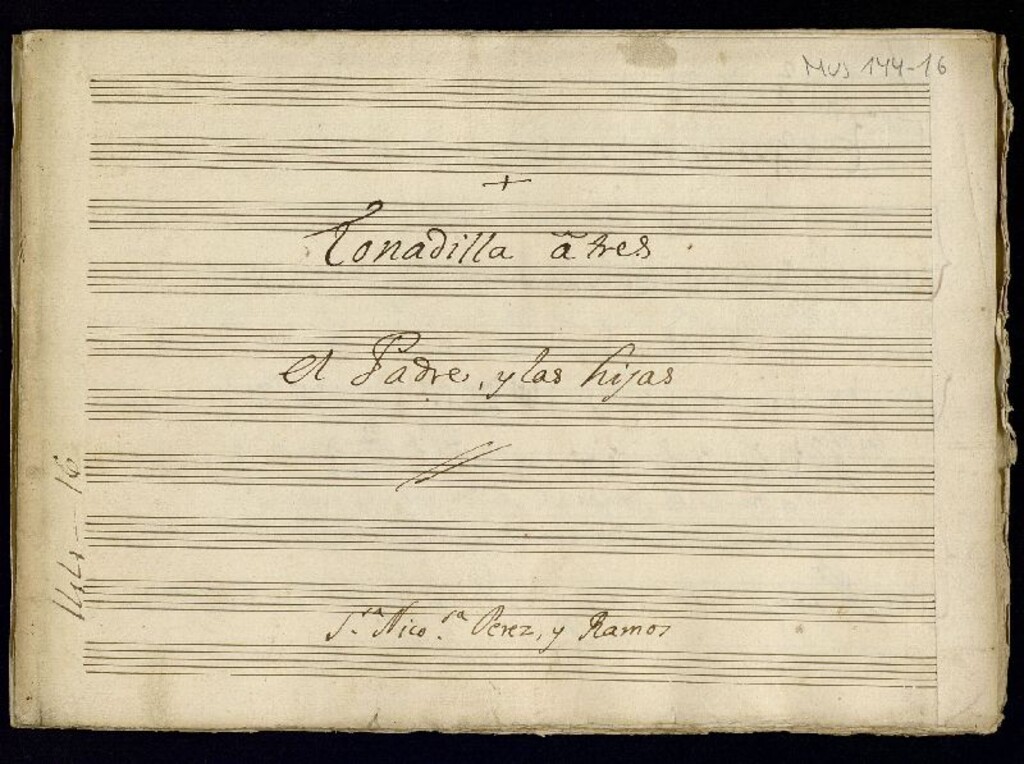 Mus 144-16
+
Tonadilla a tres
el Padre, y las hijas
S.ra Nico.sa Perez, y Ramos
144-16